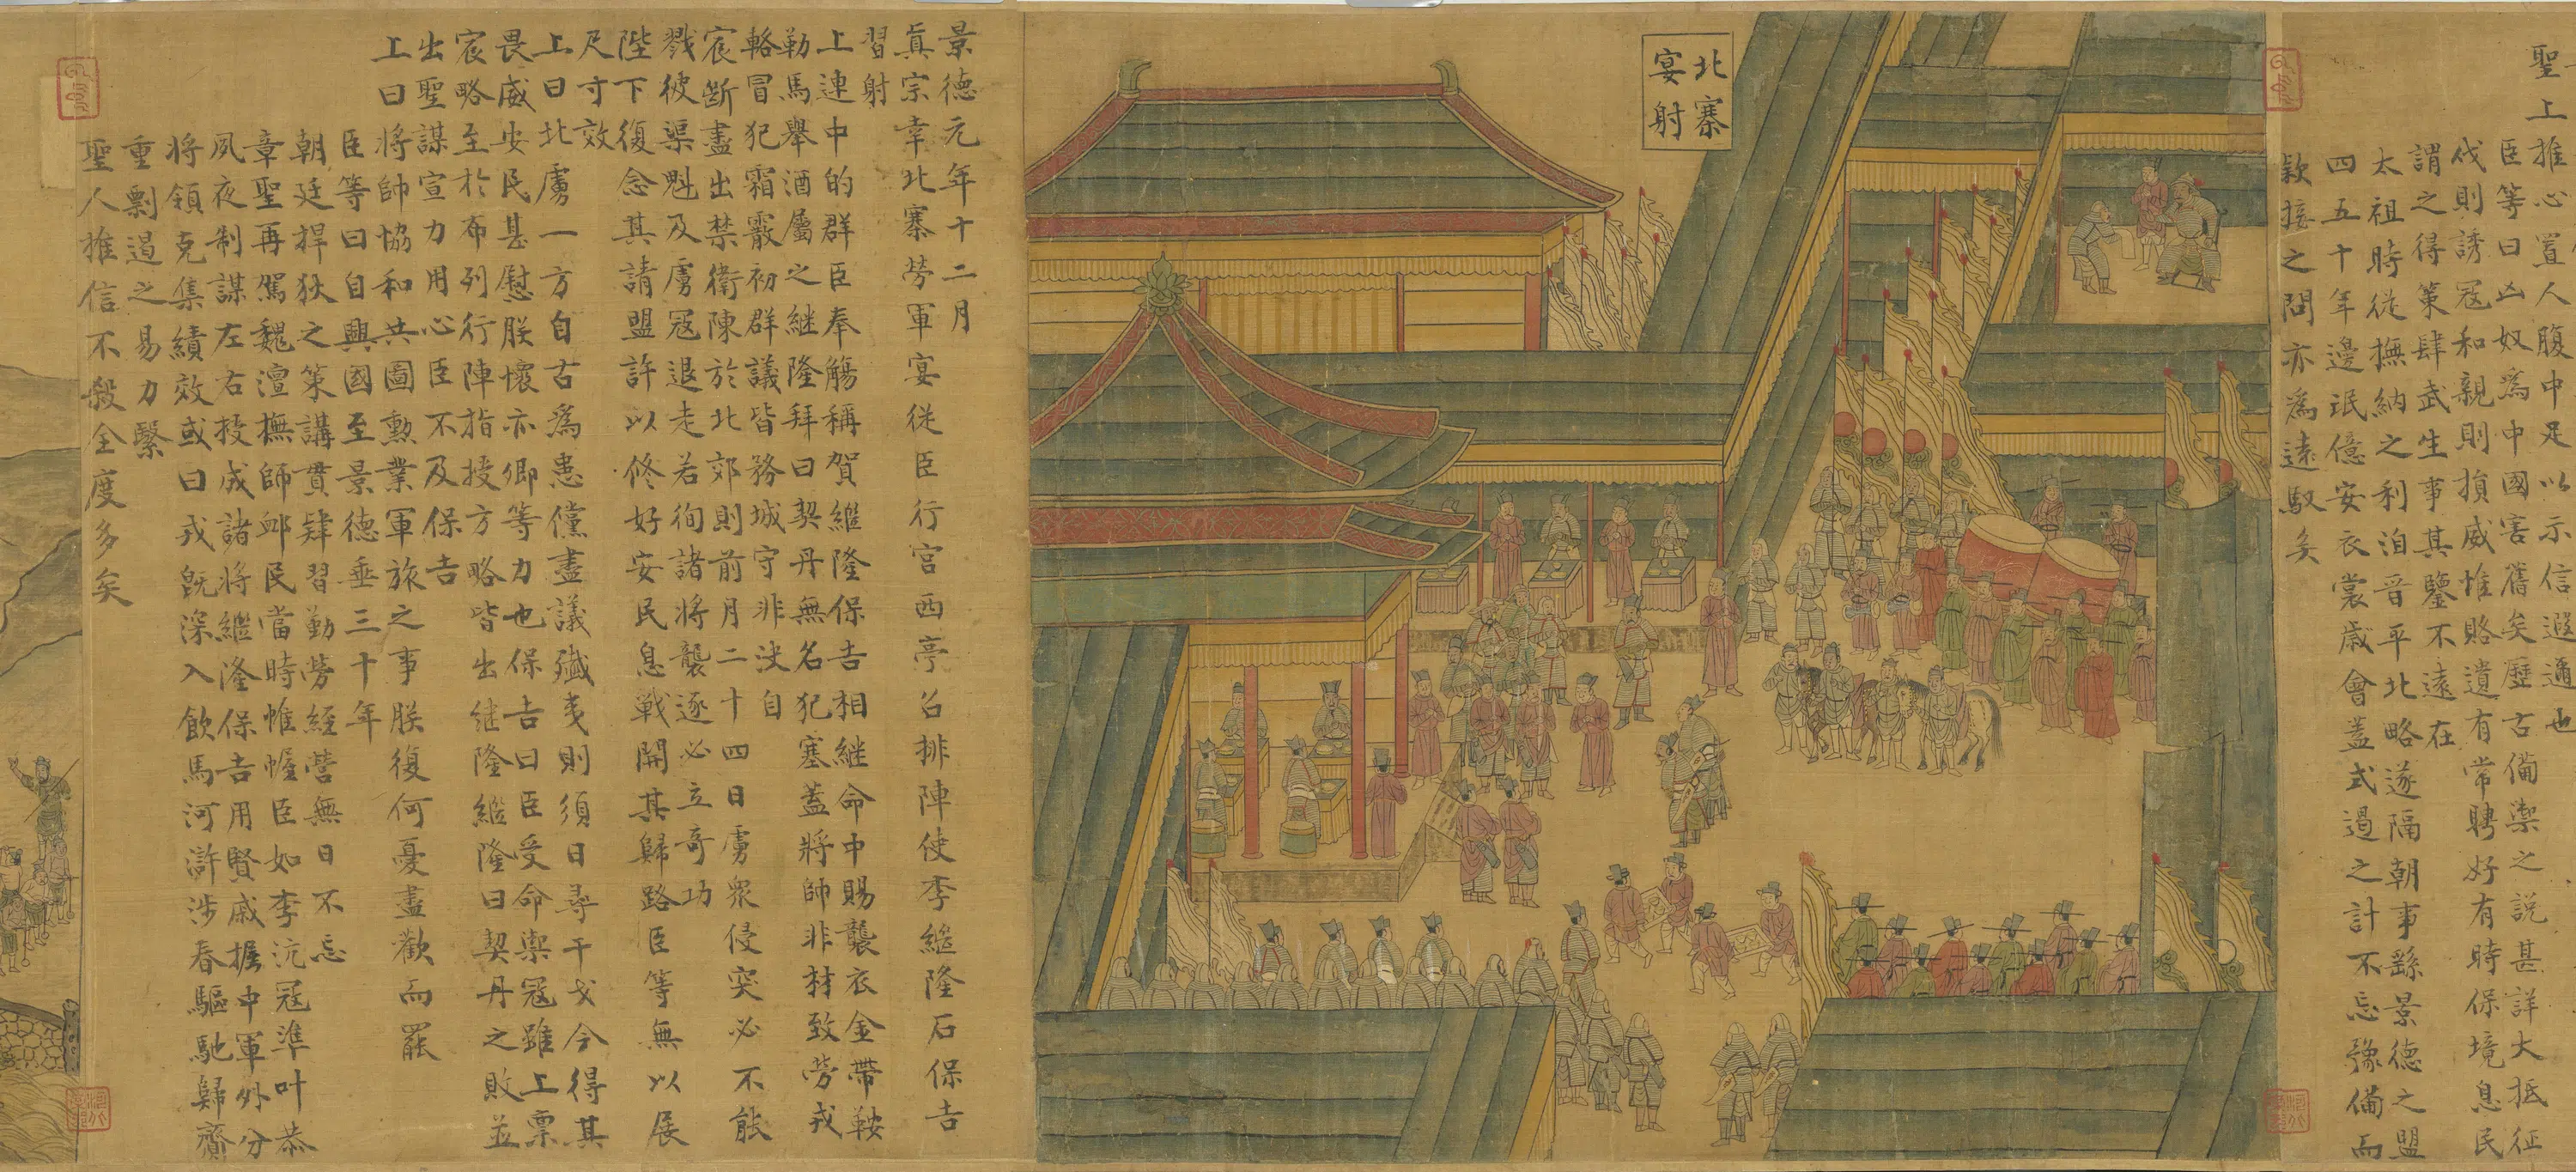 聖上推心置人腹中足以示信遐邇也
臣等曰凶奴為中國害舊矣歷古備禦之說甚詳大抵征
伐則誘冦和親則損威惟賂遺有常聘好有時保境息民
謂之得策肆武生事其鑒不遠在
太祖時從撫納之利洎晉平北略遂隔朝事繇景德之盟
四五十年邊珉億安衣裳歲會蓋式遏之計不忘豫備而
欵接之問亦為遠馭矣
北寨
宴射
景德元年十二月
眞宗幸北寨勞軍宴從臣行宮西亭召排陣使李繼隆石保吉
習射
上連中的群臣奉觴稱賀繼隆保吉相継命中賜襲衣金帶鞍
勒馬舉酒屬之継隆拜曰契丹無名犯塞蓋將帥非材致勞戎
輅冒犯霜霰初群議皆務城守非決自
宸斷盡出禁衛陳於北郊則前月二十四日虜衆侵突必不能
戮彼渠魁及虜冦退走若徇諸將襲逐必立奇功
陛下復念其請盟許以修好安民息戰開其歸路臣等無以展
尺寸效
上曰北虜一方自古為患儻盡議殲夷則須日尋干戈今得其
畏威安民甚慰朕懷亦卿等力也保吉曰臣受命禦冦雖上稟
宸略至於布列行陣指授方略皆出継隆繼隆曰契丹之敗並
出聖謀宣力用心臣不及保吉
上曰將帥協和共圖勳業軍旅之事朕復何憂盡歡而罷
臣等曰自興國至景德垂三十年
朝廷捍狄之策講貫肄習勤勞經營無日不忘
章聖再駕魏澶撫師卹民當時帷幄臣如李沆冦準叶恭
夙夜制謀左右授成諸將繼隆保吉用賢戚握中軍外分
將領克集績效或曰戎旣深入飲馬河滸涉春驅馳歸齎
重剽遏之易力繫
聖人推信不殺全度多矣